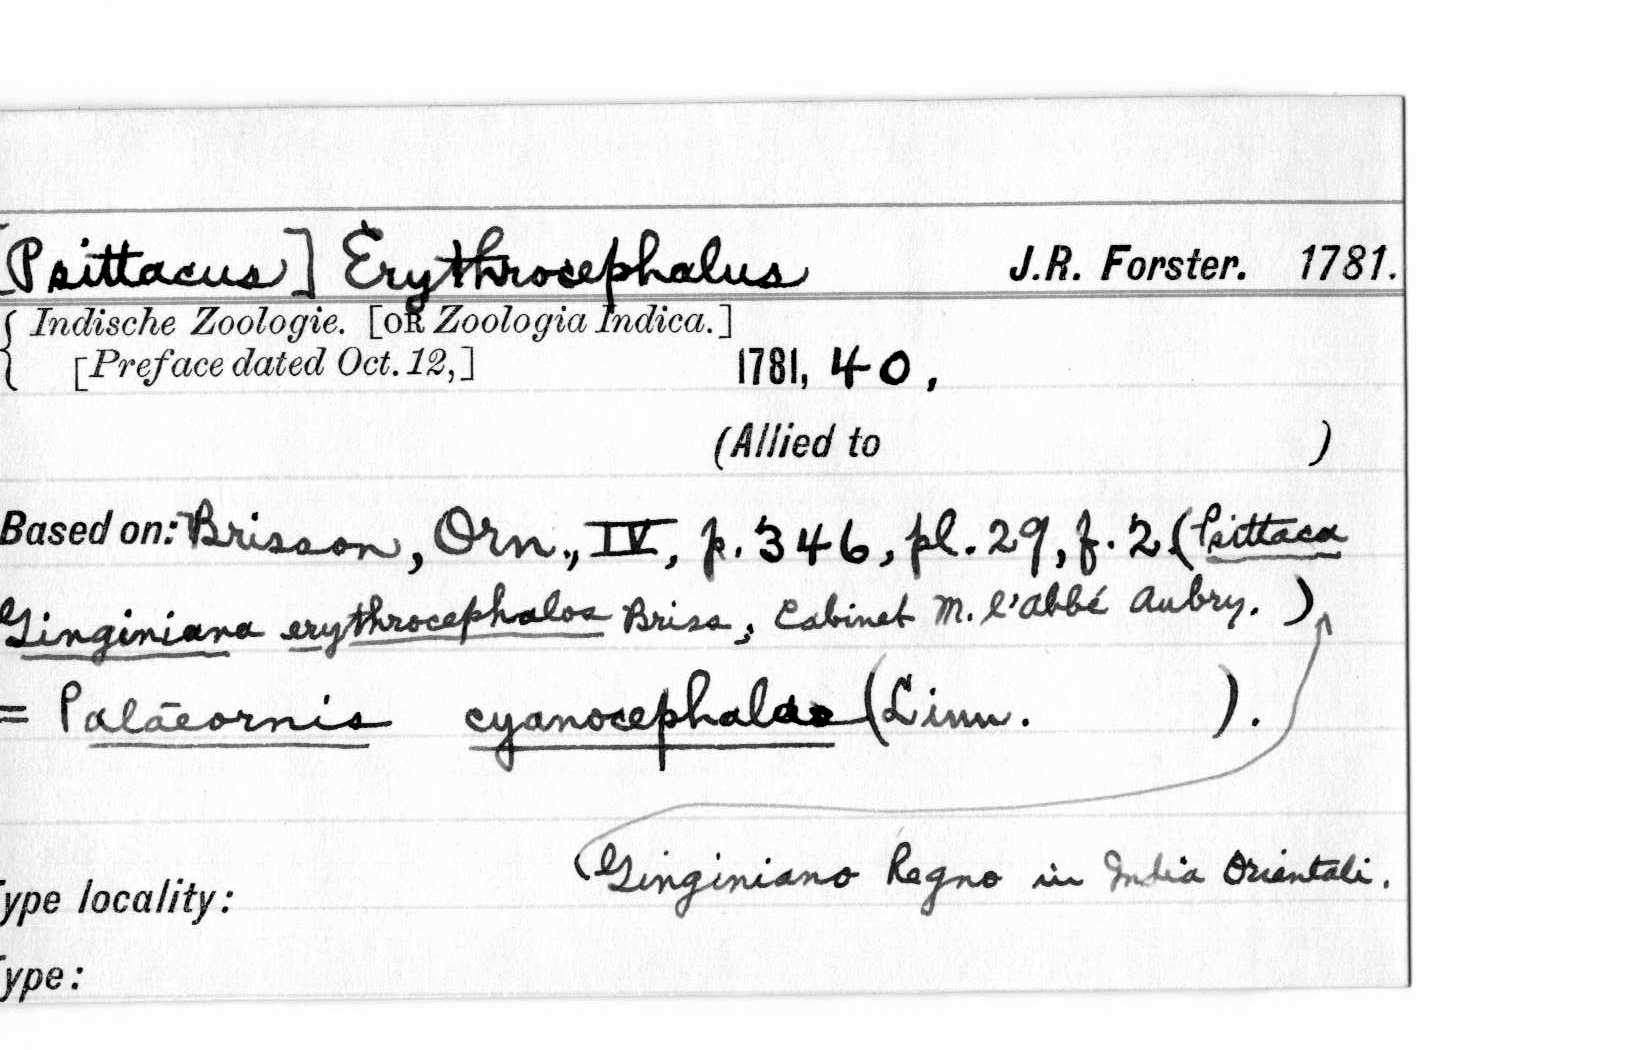 [Psittacus] Erythrocephalus J.R. Forster. 1781.
Indische Zoologie. [OR Zoologia Indica.]
[Preface dated Oct. 12,] 1781, 40,
(Allied to )
Based on: Brisson, Orn., IV, p. 346, pl. 29, f. 2 (Psittaca
Ginginiana erythrocephalos Briss, Cabinet M. l'abbé Aubry.)
= Palaeornis cyanocephala (Linn. ).
(Ginginiano Regno in India Orientali.
Type locality:
Type: